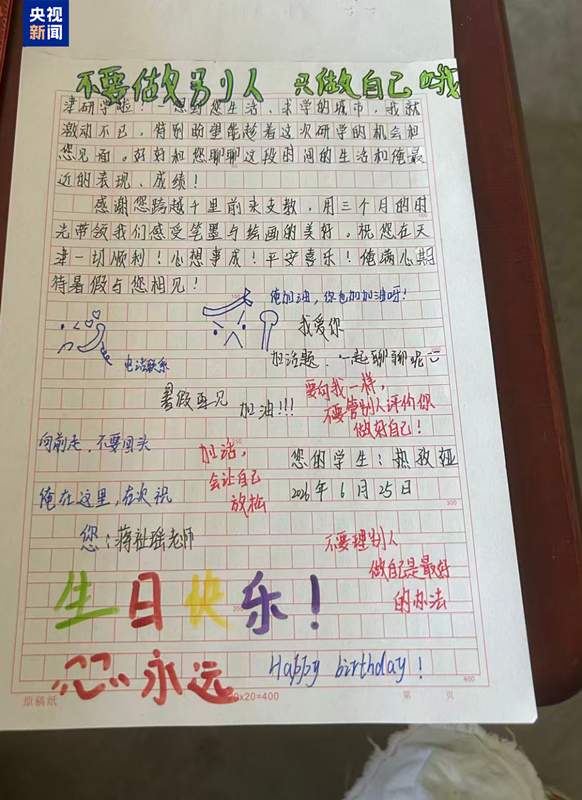 央视新闻
不要做别人 只做自己哦
津研学啦！一想到您生活、求学的城市，我就
激动不已，特别盼望能趁着这次研学的机会和
您见面。好好和您聊聊这段时间的生活和俺最
近的表现、成绩！
感谢您跨越千里前来支教，用三个月的时
光带领我们感受笔墨与绘画的美好。祝您在天
津一切顺利！心想事成！平安喜乐！俺满心期
待暑假与您相见！
俺加油，你也加加油呀！
我爱你
电话联系
加话题，一起聊聊呢
暑假再见
加油!!!
要向我一样，
不要管别人评价你
做好自己！
向前走，不要回头
加话，
会让自己
放松
您的学生：热孜娅
俺在这里，在次祝
2026年6月25日
您：蒋祉瑶老师
不要理别人
做自己是最好
的办法
生日快乐！
永远
Happy birthday!
原稿纸
20x20=400
第 页
300
400